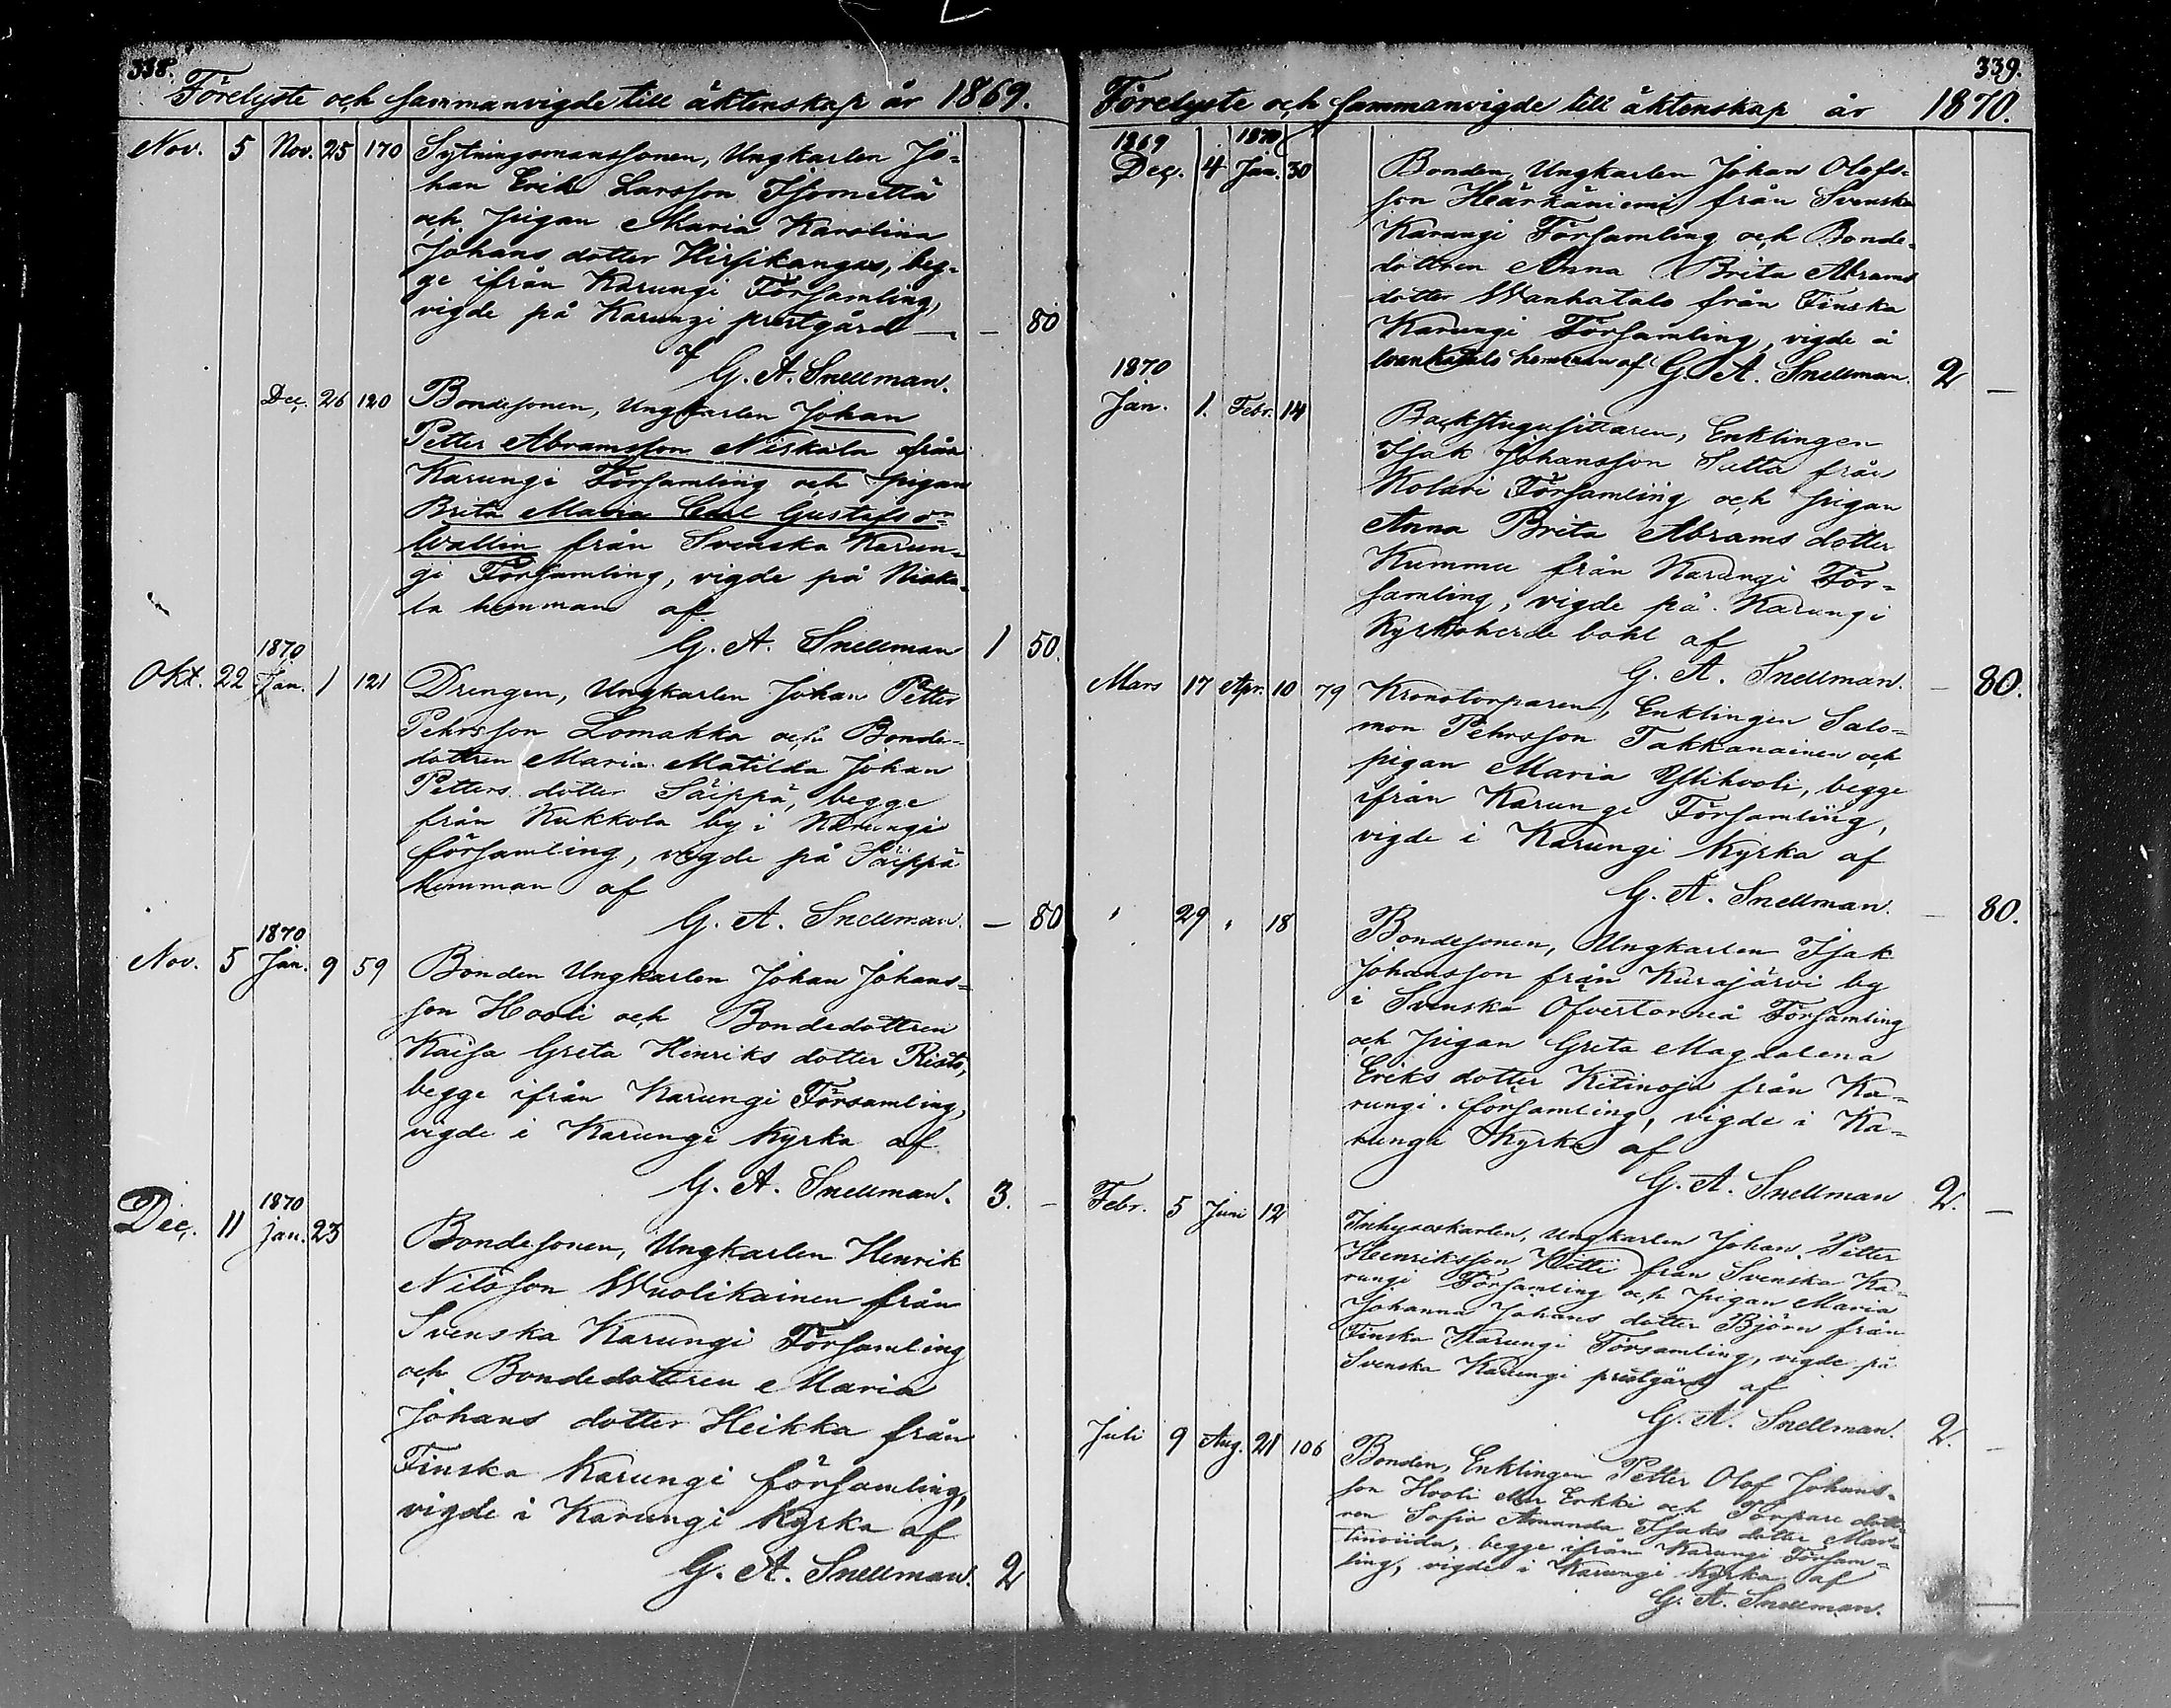 338.
Förelyste och sammanvigde till äktenskap år 1869.
Nov. 5 Nov. 25 170 Sytningsmanssonen, Ungkarlen Jo-
han Erik Larsson
och pigan Maria Karolina
Johans dotter Hirsikangas, beg-
ge ifrån Karungi Församling,
vigde på Karungi prestgård — — 80
af
G. A. Snellman.
Dec. 26 120 Bondesonen, Ungkarlen Johan
Petter Abramsson Niskala från
Karungi Församling och pigan
Brita Maria Carl Gustafs dr
Wallin från Svenska Karun-
gi Församling, vigde på Niska-
la hemman af
G. A. Snellman 1 50.
1870
Okt. 22 Jan. 1 121 Drengen, Ungkarlen Johan Petter
Pehrsson Lomakka och Bonde-
dottren Maria Matilda Johan
Petters dotter Säippä, begge
från Kukkola by i Karungi
församling, vigde på Säippä
hemman af
G. A. Snellman. — 80
1870
Nov. 5 Jan. 9 59 Bonden Ungkarlen Johan Johans-
son Hooli och Bondedottren
Kaisa Greta Henriks dotter Risto,
begge ifrån Karungi Församling,
vigde i Karungi Kyrka af
G. A. Snellman. 3. —
1870
Dec. 11 Jan. 23 Bondesonen, Ungkarlen Henrik
Nilsson Wuolikainen från
Svenska Karungi Församling
och Bondedottren Maria
Johans dotter Heikka från
Finska Karungi församling,
vigde i Karungi Kyrka af
G. A. Snellman. 2
339.
Förelyste och sammanvigde till äktenskap år 1870.
1869 1870
Dec. 4 Jan. 30 Bonden, Ungkarlen Johan Olofs-
son Heärkäniemi från Svenska
Karungi Församling och Bonde-
dottren Anna Brita Abrams
dotter Wanhatalo från Finska
Karungi Församling, vigde å
Wanhatalo hemman af G. A. Snellman. 2 —
1870
Jan. 1. Febr. 14 Backstugusittaren, Enklingen
Isak Johansson Sutta från
Kolari Församling och pigan
Anna Brita Abrams dotter
Kummu från Karungi För-
samling, vigde på Karungi
Kyrkoherde bohl af
G. A. Snellman. — 80.
Mars 17 Apr. 10 79 Kronotorparen, Enklingen Salo-
mon Pehrsson Takkanainen och
pigan Maria Ylihooli, begge
ifrån Karungi Församling,
vigde i Karungi Kyrka af
G. A. Snellman. — 80.
" 29 " 18 Bondesonen, Ungkarlen Isak
Johansson från Kurajärvi by
i Svenska Öfvertorneå Församling
och pigan Greta Magdalena
Eriks dotter Kitinoja från Ka-
rungi församling, vigde i Ka-
rungi Kyrka af
G. A. Snellman 2. —
Febr. 5 Juni 12 Inhyseskarlen, Ungkarlen Johan Petter
Henriksson Witti från Svenska Ka-
rungi Församling och pigan Maria
Johanna Johans dotter Björn från
Finska Karungi Församling, vigde på
Svenska Karungi prestgård af
G. A. Snellman. 2. —
Juli 9 Aug. 21 106 Bonden, Enklingen Petter Olof Johans-
son Hooli eller Erkki och Torpare dott-
ren Sofia Amanda Isaks dotter Mar-
begge ifrån Karungi Försam-
ling, vigde i Karungi Kyrka af
G. A. Snellman. —